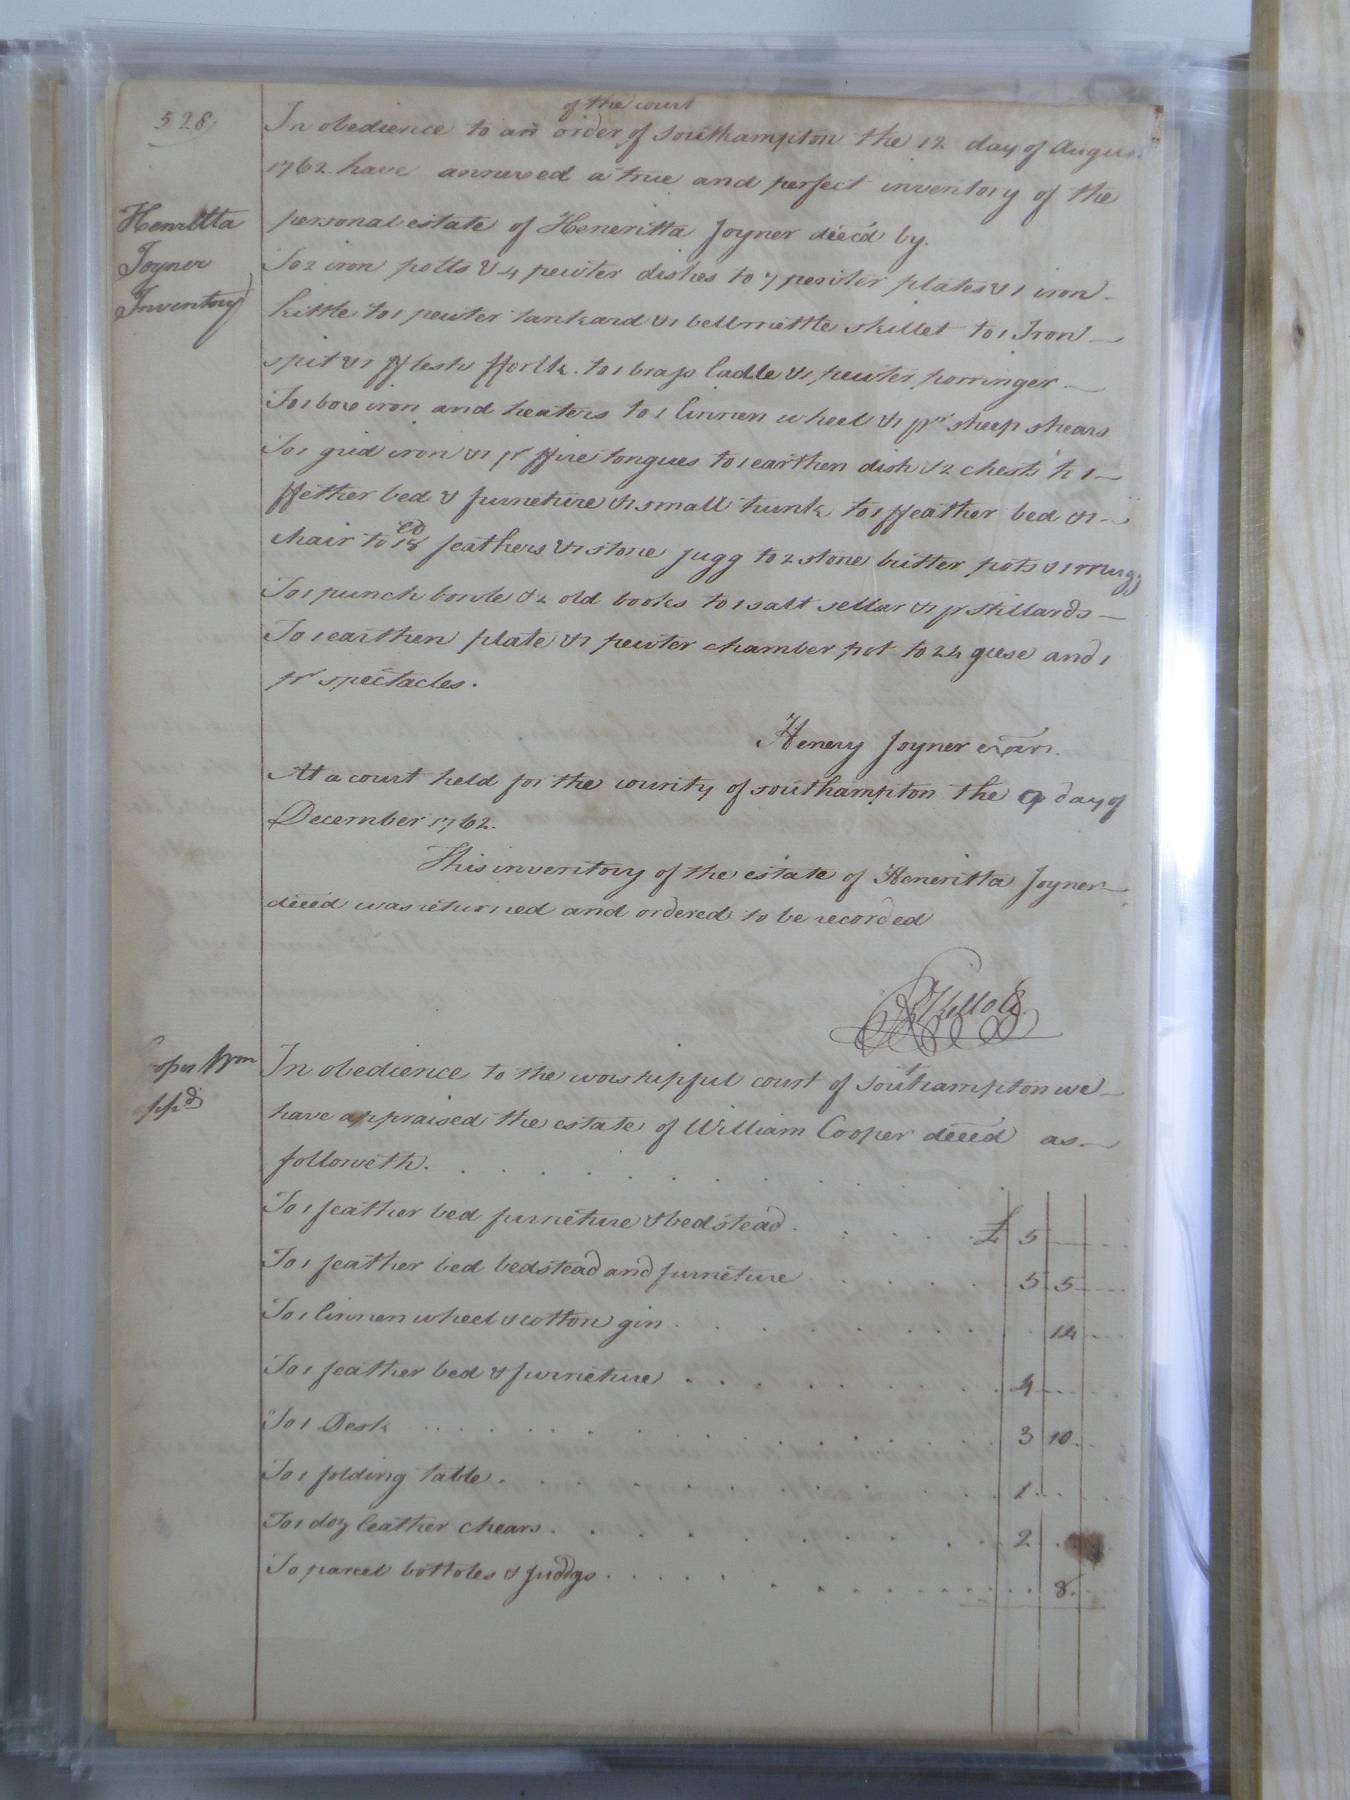 528
of the court
In obedience to an order of Southampton the 12 day of Augus
1762 have annexed a true and perfect inventory of the
Henritta
personal estate of Heneritta Joyner dece'd by.
Joyner
To 2 iron potts & 4 pewter dishes to 7 pewter plates & 1 iron
Inventory
kittle to 1 pewter tankard & 1 bellmettle skillet to 1 Iron
spit & 1 fflesh fforlk. to 1 brass ladle & 1 pewter porringer
To 1 box iron and heaters to 1 linnen wheel & 1 pr sheep shears
To 1 grid iron & 1 pr ffire tongues to 1 earthen dish & 2 chests to 1
ffether bed & furneture & 1 small trunk to 1 ffeather bed & 1
chair to 18 feathers & 1 stone jugg to 2 stone butter pots & 1 mugg
To 1 punch bowle & 2 old books to 1 salt sellar & 1 pr stillards
To 1 earthen plate & 1 pewter chamber pot to 24 geese and 1
pr spectacles.
Henery Joyner
At a court held for the county of southampton the 9 day of
December 1762.
This inventory of the estate of Heneritta Joyner
deced was returned and ordered to be recorded
Wm
In obedience to the worshipful court of Southampton we
ppd
have appraised the estate of William Cooper deced as
followeth.
To 1 feather bed furneture & bedstead . . . . £ 5
To 1 feather bed bedstead and furneture . . . . 5 5
To 1 linnen wheel & cotton gin . . . . . . . 12
To 1 feather bed & furneture . . . . . . . 4
To 1 Desk . . . . . . . . . . 3 10
To 1 folding table . . . . . . . . . 1
To 1 doz leather chears . . . . . . . . 2
To parcel bottoles & juggs . . . . . . . . 8